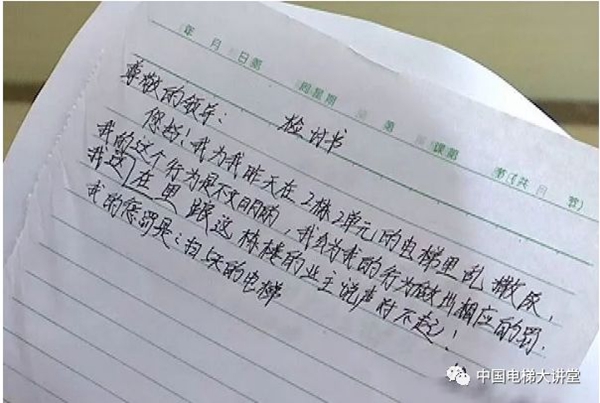 年 月 日 第 周星期 第 课第 节(共 节)
检讨书
尊敬的领导：
你好！我为我昨天在2栋2单元的电梯里乱撒尿，
我的这个行为是不文明的，我会为我的行为做出相应的罚，
我这 在里 跟这栋楼的业主说声对不起！
我的惩罚是：扫5天的电梯
中国电梯大讲堂